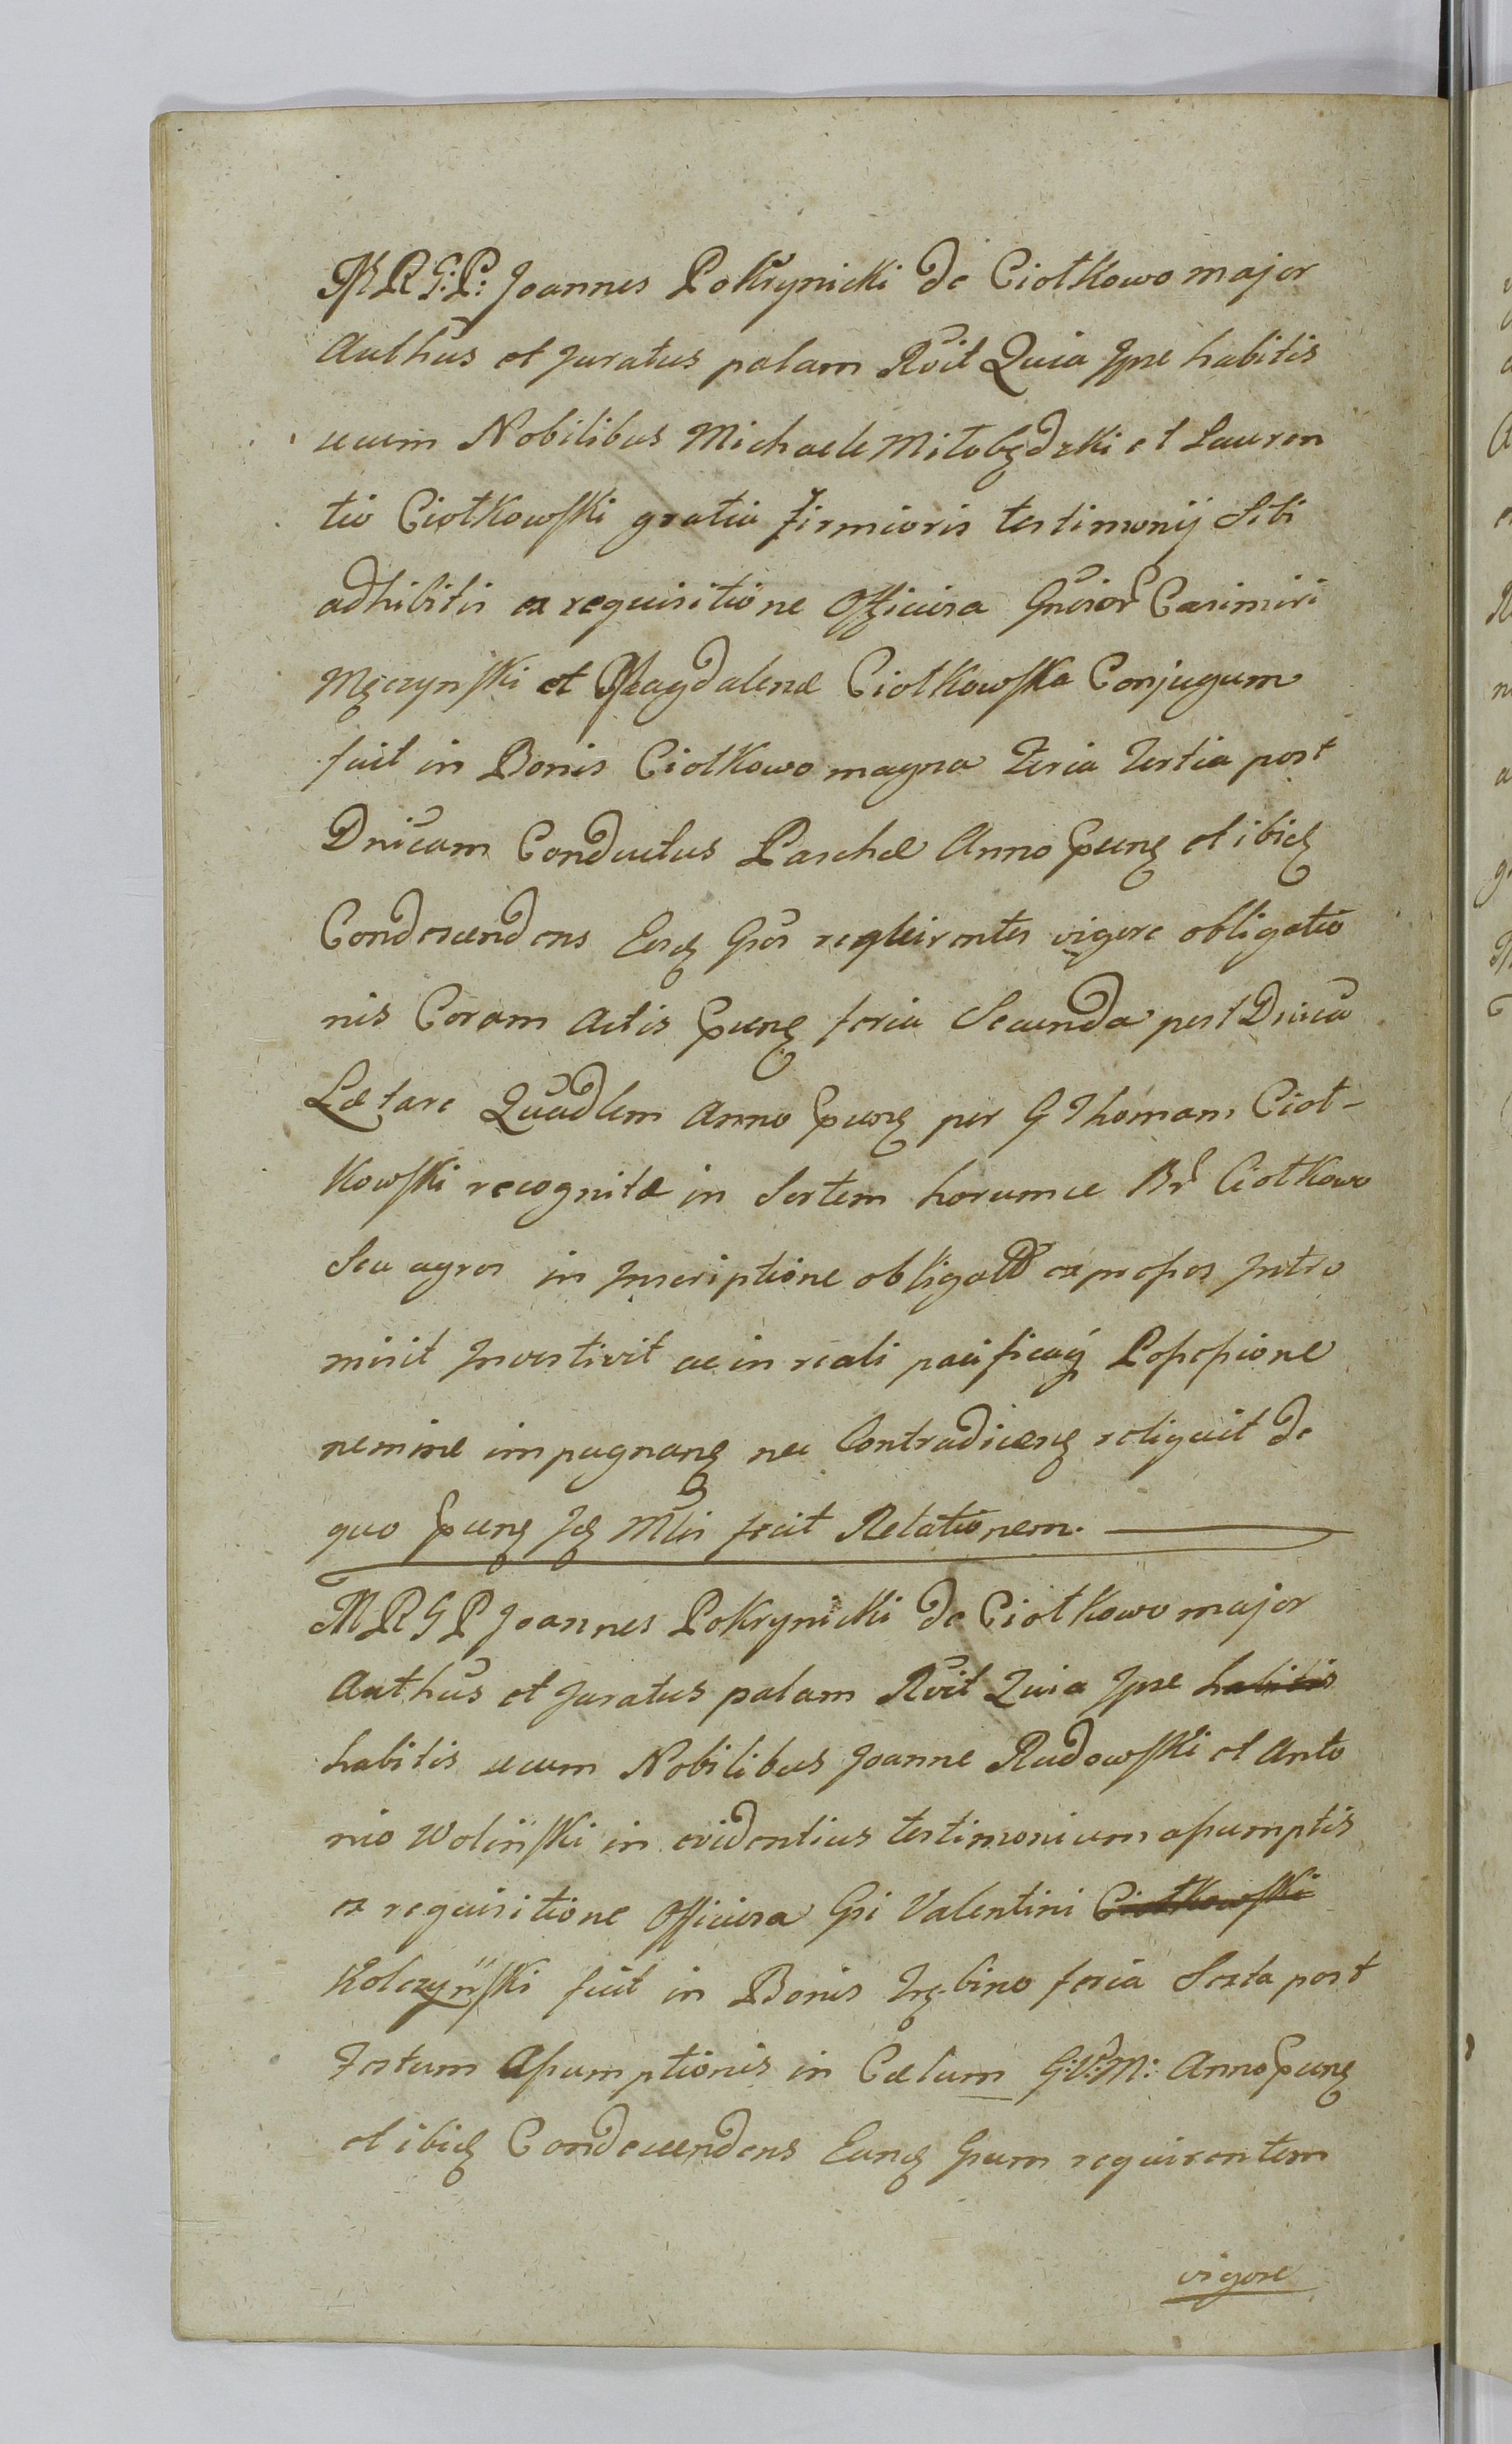 M R G: P: Joannes Pokrynicki de Ciołkowo major
Authūs et Juratus palam Rvit Quia Ipse habitis
secum Nobilibus Michaele Miłobędzki et Lauren
tio Ciołkowski gratia firmioris testimonij Sibi
adhibitis ex requisitione Officiosa Gnsior Casimiri
Męczynski et Magdalenæ Ciołkowska Conjugum
fuit in Bonis Ciołkowo magna Feria Tertia post
Dnicam Conductus Paschæ Anno pnng et ibid
Condescendens Eosd Gsos requirentes vigore obligatio
nis Coram Actis pnng feria Secunda post Dnica
Lætare Quadlem Anno pnng per G Thomam Cioł-
kowski recognitæ in Sortem horumce Br Ciołkowo
Seu agros in Inscriptione obligatt expressos Intro
misit Investivit ac in reali pacificaq Possessione
nemine impugnang nec Contradiceng reliquit de
quo pnng Id Mlis fecit Relationem.
M R G P Joannes Pokrynicki de Ciołkowo major
Authūs et Juratus palam Rvit Quia Ipse habitis
habitis secum Nobilibus Joanne Rudowski et Anto
nio Wolinski in evidentius testimonium assumptis
ex requisitione Officiosa Gsi Valentini Ciołkowski
Kolczynski fuit in Bonis Trębino feria Sexta post
Festum Assumptionis in Cælum G: V: M: Anno pnng
et ibid Condescendens Eund Gsum requirentem
vigore